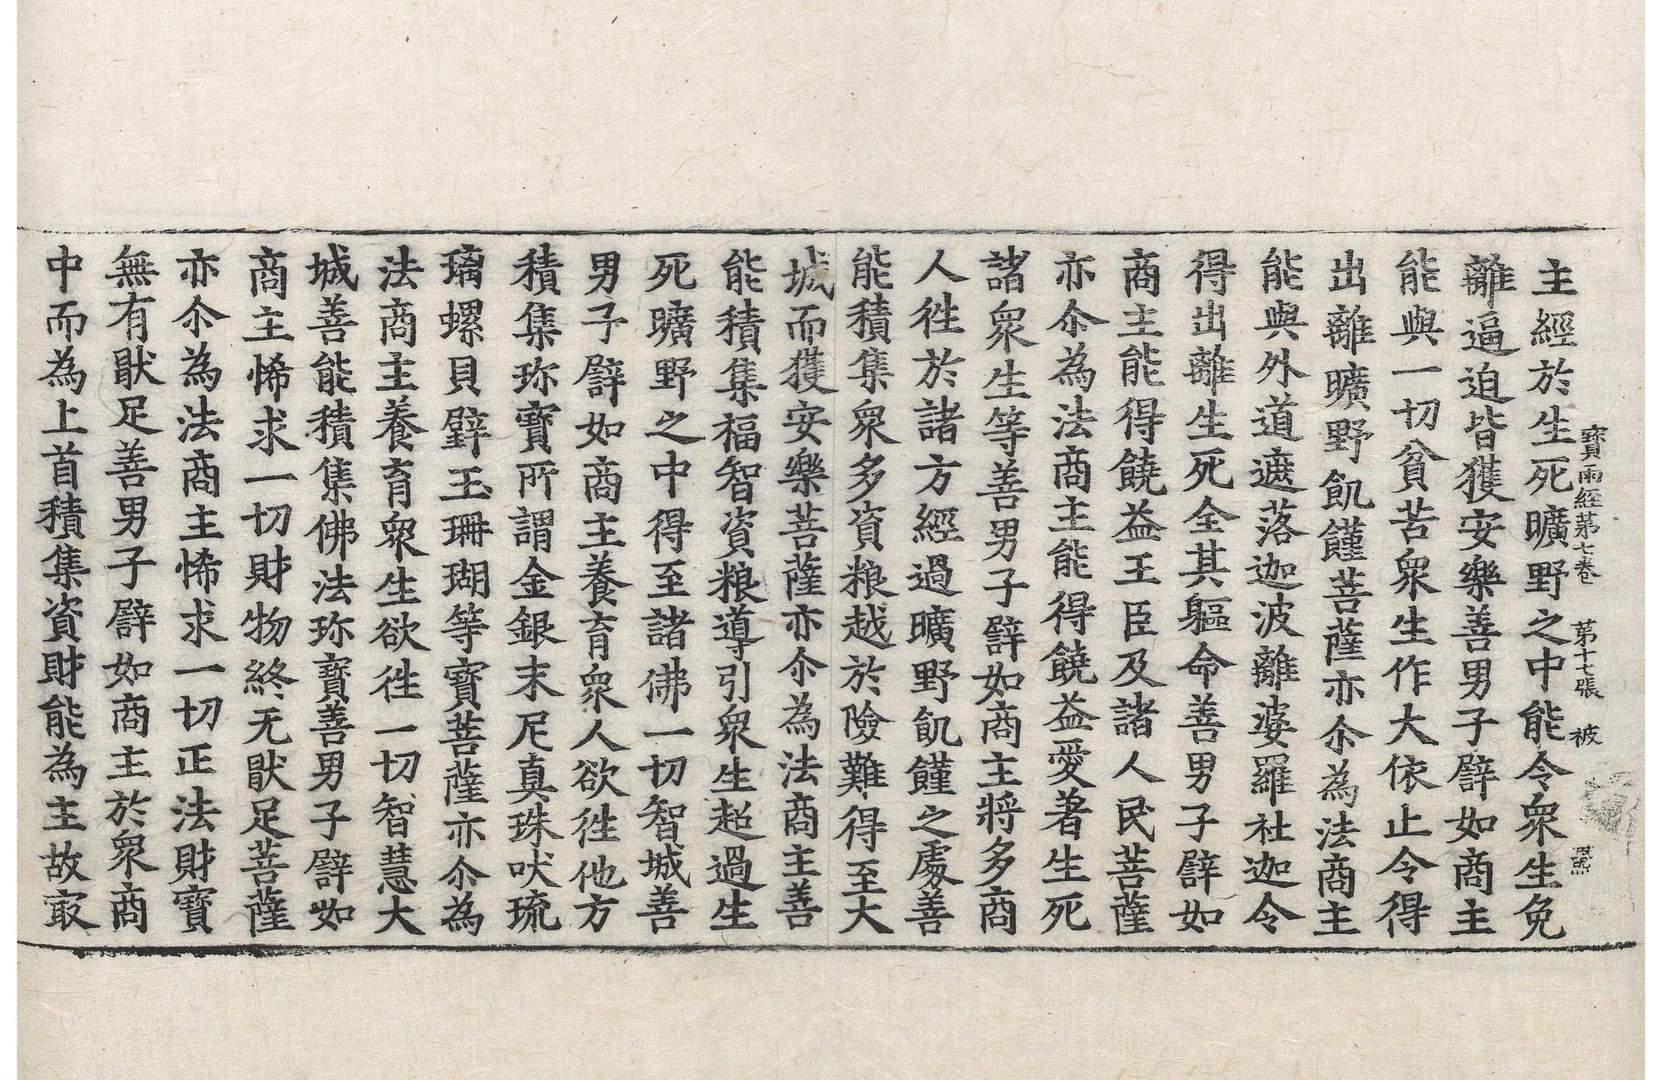 寶雨經第七卷 第十七張 被
主經於生死曠野之中能令衆生免
離逼迫皆獲安樂善男子譬如商主
能與一切貧苦衆生作大依止令得
出離曠野飢饉菩薩亦尒為法商主
能與外道遮落迦波離婆羅社迦令
得出離生死全其軀命善男子譬如
商主能得饒益王臣及諸人民菩薩
亦尒為法商主能得饒益愛著生死
諸衆生等善男子譬如商主將多商
人徃於諸方經過曠野飢饉之處善
能積集衆多資粮越於險難得至大
城而獲安樂菩薩亦尒為法商主善
能積集福智資粮導引衆生超過生
死曠野之中得至諸佛一切智城善
男子譬如商主養育衆人欲徃他方
積集珎寶所謂金銀末尼真珠吠琉
璃螺貝璧玉珊瑚等寶菩薩亦尒為
法商主養育衆生欲徃一切智慧大
城善能積集佛法珎寶善男子譬如
商主悕求一切財物終无猒足菩薩
亦尒為法商主悕求一切正法財寶
無有猒足善男子譬如商主於衆商
中而為上首積集資財能為主故㝡